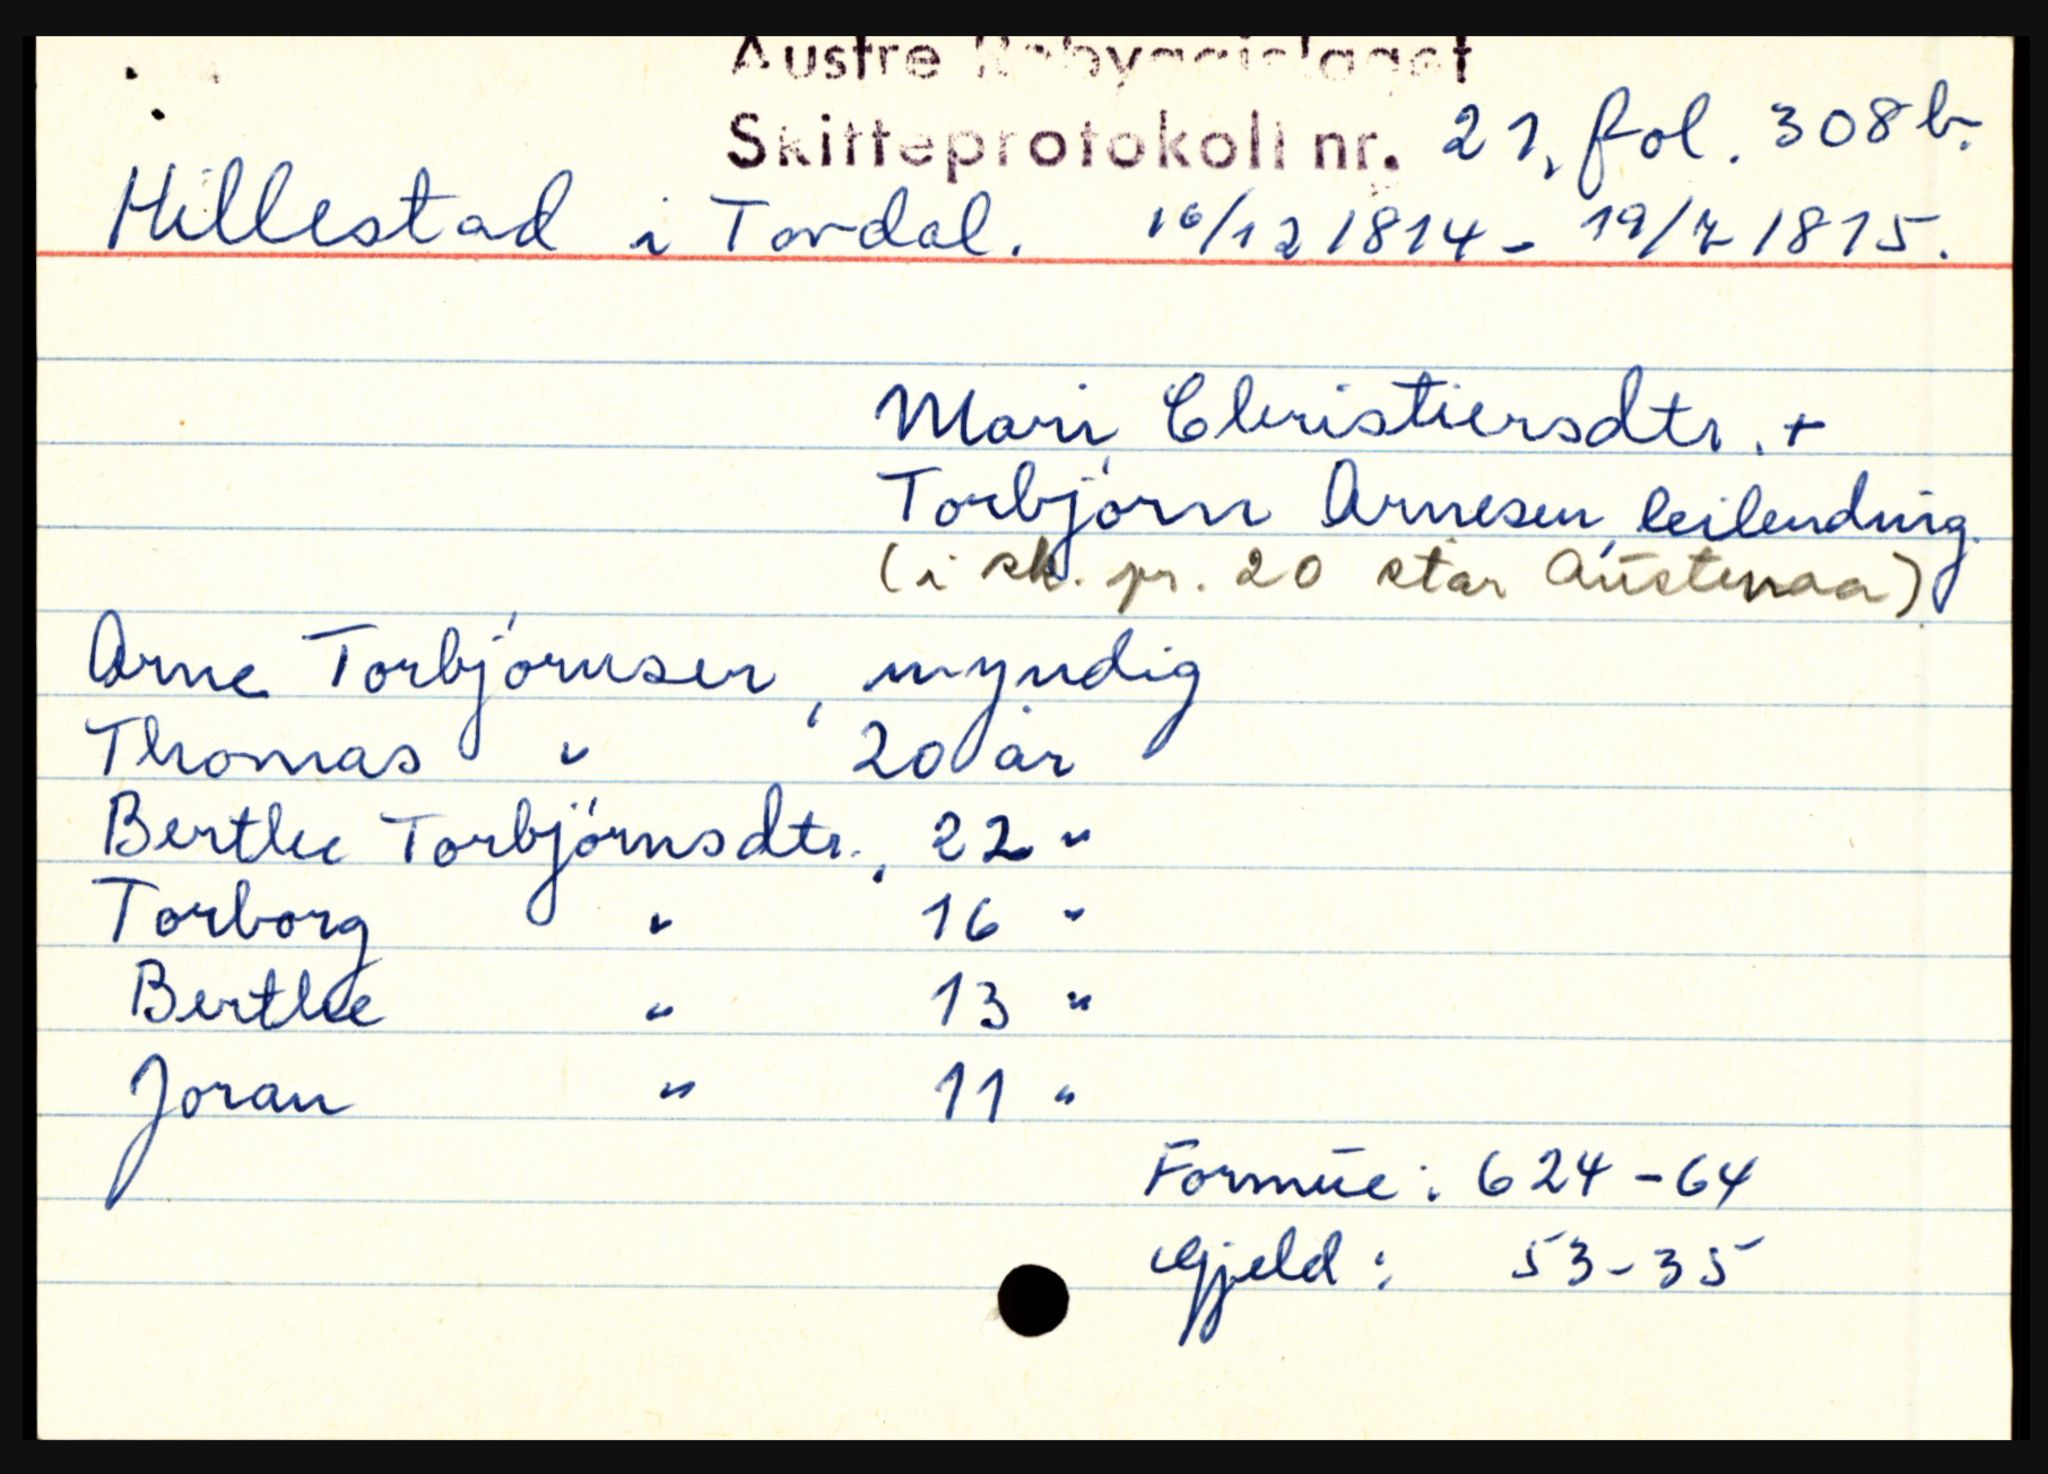 Austre Råbyggjelaget
Skifteprotokoll nr. 21, fol. 308 b.
Hillestad i Tovdal. 16/12 1814 - 19/7 1815.
Mari Christiersdtr. +
Torbjørn Arnesen, leilending.
(i sk. pr. 20 står Austenaa)
Arne Torbjørnsen, myndig
Thomas " 20 år
Berthe Torbjørnsdtr., 22 "
Torborg " 16 "
Berthe " 13 "
Joran " 11 "
Formue: 624-64
Gjeld: 53-35